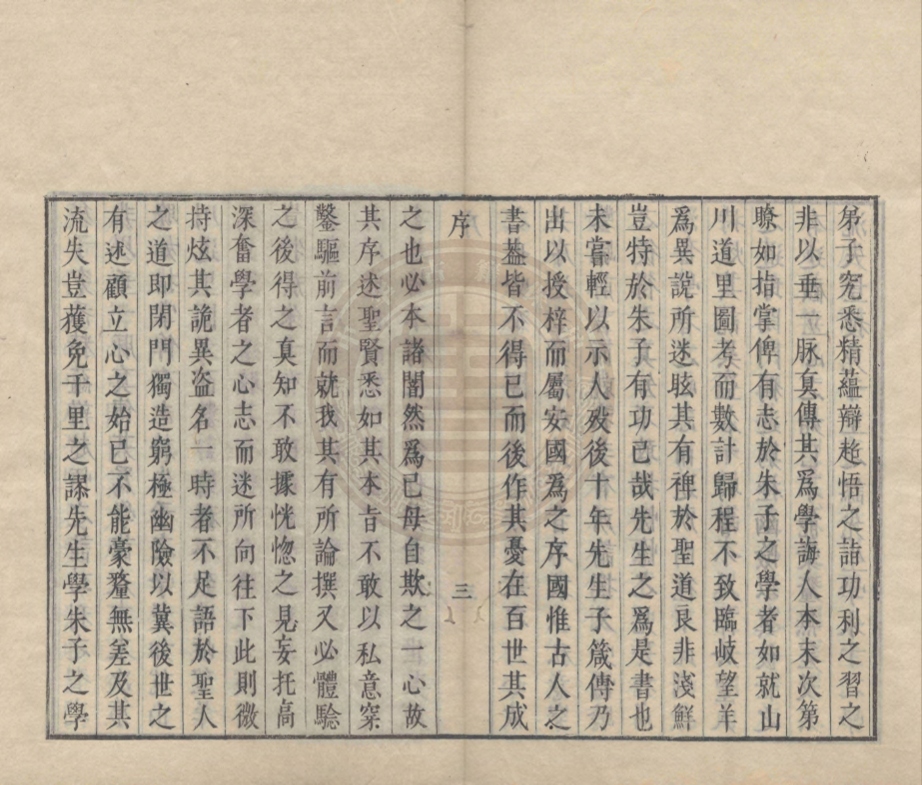 弟子究悉精蘊辯趂悟之詣功利之習之
非以垂一脉真傳其爲學誨人本末次第
瞭如指掌俾有志於朱子之學者如就山
川道里圖考而數計歸程不致臨岐望羊
爲異說所迷眩其有禆於聖道良非淺鮮
豈特於朱子有功已哉先生之爲是書也
未嘗輕以示人歿後十年先生子箴傳乃
出以授梓而屬安國爲之序國惟古人之
書葢皆不得已而後作其憂在百世其成
序
三
之也必本諸闇然爲已毋自欺之一心故
其序述聖賢悉如其本旨不敢以私意穿
鑿驅前言而就我其有所論撰又必體驗
之後得之真知不敢據恍惚之見妄托高
深奮學者之心志而迷所向往下此則微
持炫其詭異盗名一時者不足語於聖人
之道即閉門獨造窮極幽險以冀後世之
有述顧立心之始已不能豪釐無差及其
流失豈獲免千里之謬先生學朱子之學